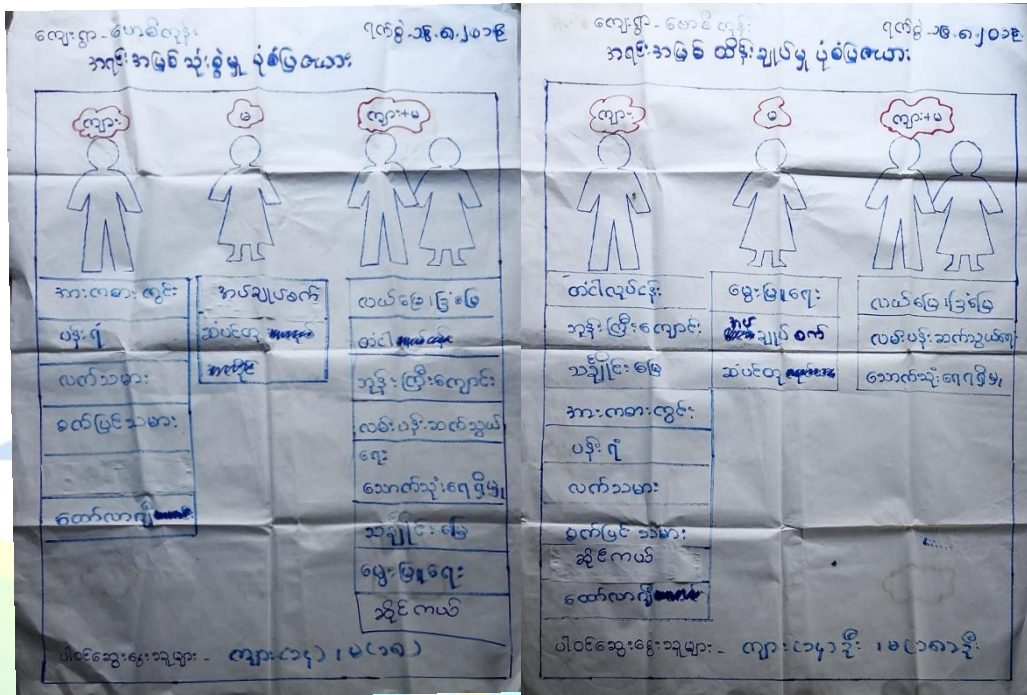 ကျေးရွာ - ဟောစိကုန်း
ရက်စွဲ
အရင်းအမြစ် သုံးစွဲမှု ပုံစံပြဇယား
ကျား
မ
ကျား+မ
အားကစားကွင်း
ပန်းရံ
လက်သမား
စက်ပြင်သမား
အပ်ချုပ်စက်
ဆံပင်တု
လယ်မြေ၊ခြံမြေ
တံငါ
ဘုန်းကြီးကျောင်း
လမ်းပန်းဆက်သွယ်
ရေး
သောက်သုံးရေရရှိမှု
သင်္ချိုင်းမြေ
မွေးမြူရေး
ဆိုင်ကယ်
ပါဝင်ဆွေးနွေးသူများ - ကျား(၁၄)၊ မ(၁၈)
ကျေးရွာ - ဟောစိကုန်း
ရက်စွဲ
အရင်းအမြစ် ထိန်းချုပ်မှု ပုံစံပြဇယား
ကျား
မ
ကျား+မ
တံငါလုပ်ငန်း
ဘုန်းကြီးကျောင်း
သင်္ချိုင်းမြေ
အားကစားကွင်း
ပန်းရံ
လက်သမား
စက်ပြင်သမား
ဆိုင်ကယ်
မွေးမြူရေး
အပ်ချုပ်စက်
ဆံပင်တု
လယ်မြေ၊ခြံမြေ
လမ်းပန်းဆက်သွယ်ရေး
သောက်သုံးရေရရှိမှု
ပါဝင်ဆွေးနွေးသူများ - ကျား(၁၄)ဦး၊ မ(၁၈)ဦး